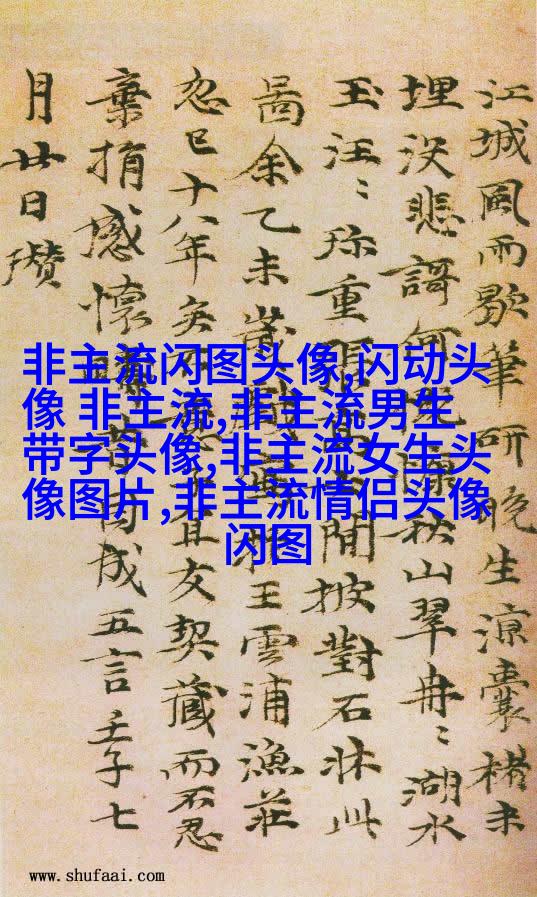 江城風雨歇筆研晚生涼囊楮未
埋沒悲謌何秋山翠冉〻湖水
玉汪〻珎重閒披對石牀此
啚余乙未歲王雲浦漁莊
忽已十八年矣不且友契藏而不忍
棄捐感懷因成五言壬子七
月廿日瓚
非主流闪图头像,闪动头
像 非主流,非主流男生
带字头像,非主流女生头
像图片,非主流情侣头像
闪图
www.shufaai.com